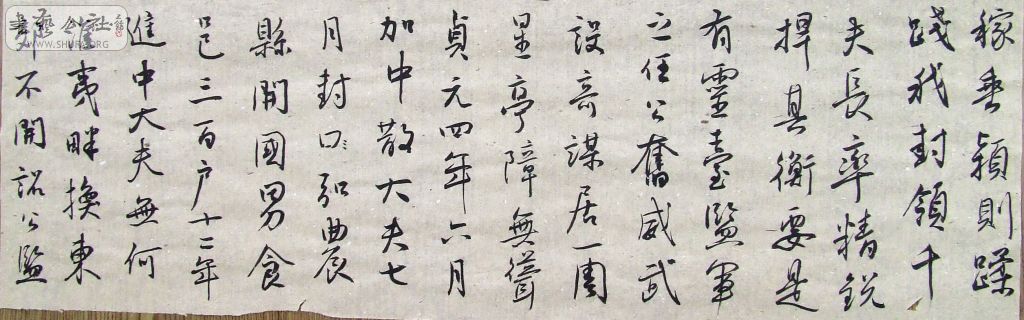 稼垂穎則蹂
踐我封領千
夫長率精銳
捍其衝要是
有靈臺監軍
之任公奮威武
設奇謀居一周
星亭障無聳
貞元四年六月
加中散大夫七
月封口弘農
縣開國男食
邑三百戶十二年
進中大夫無何
夷畔換東
不開詔公監
WWW.SHUFA.ORG